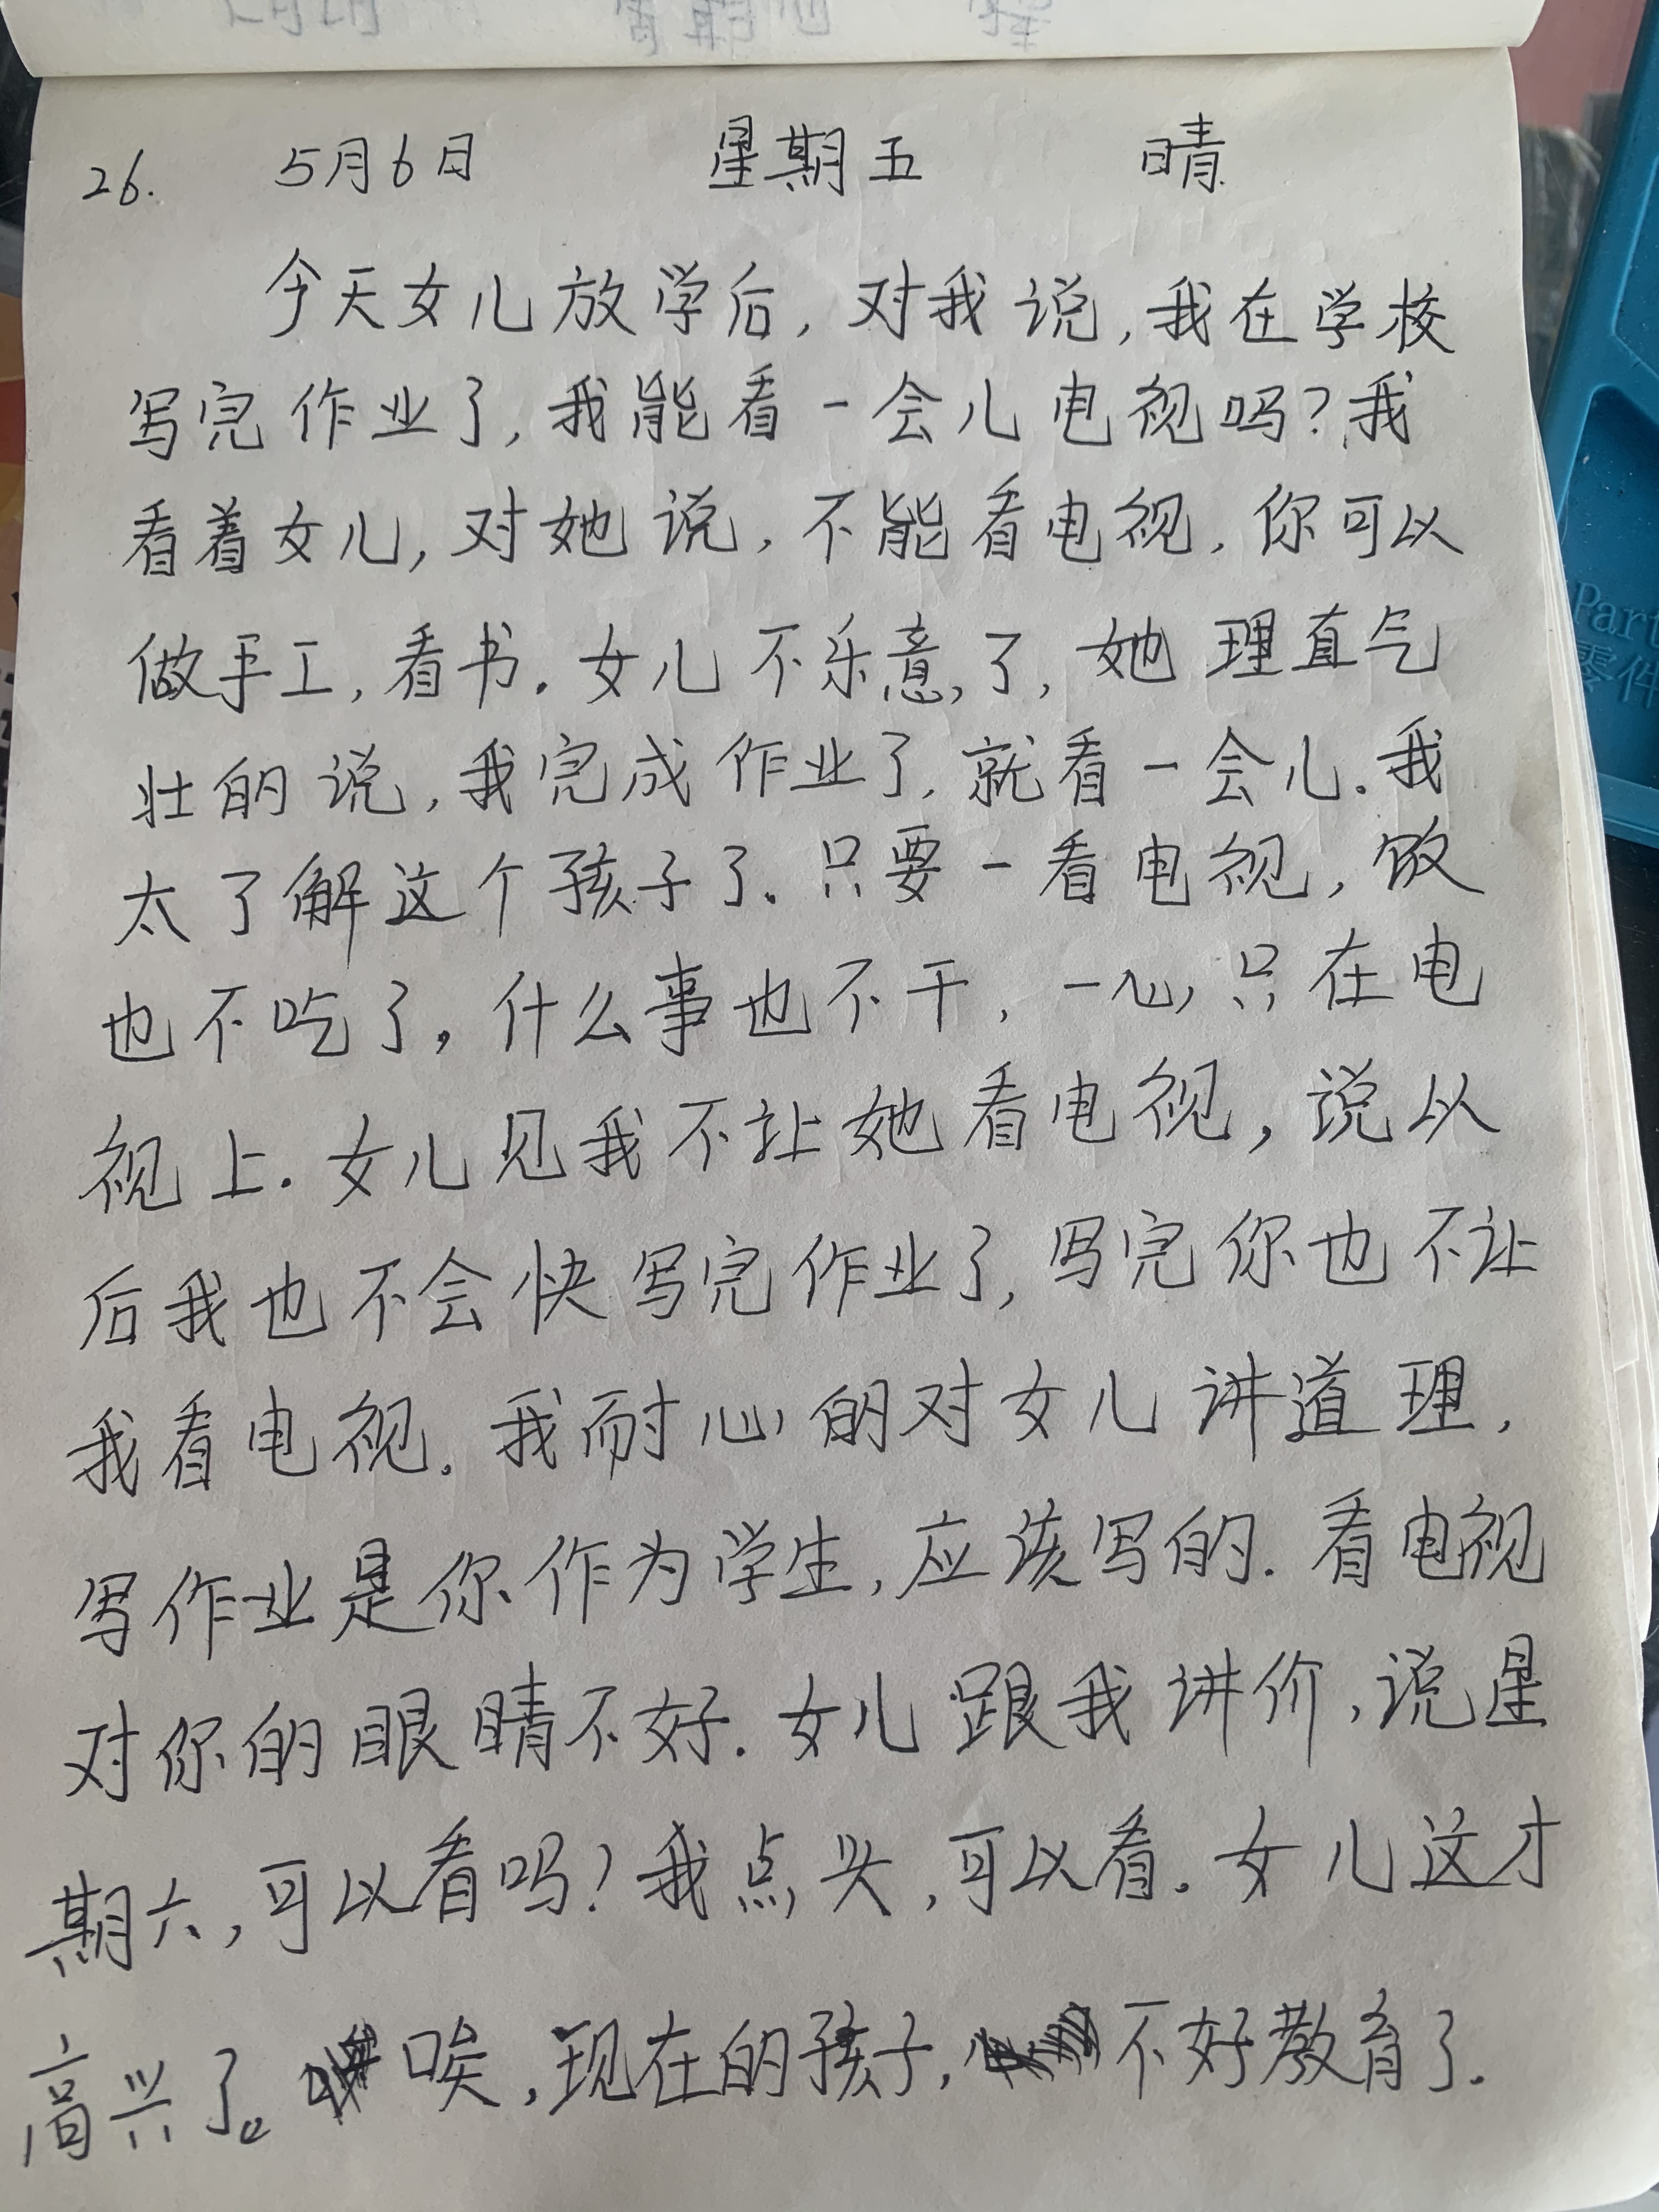 26. 5月6日 星期五 晴
今天女儿放学后，对我说，我在学校
写完作业了，我能看一会儿电视吗？我
看着女儿，对她说，不能看电视，你可以
做手工，看书。女儿不乐意了，她理直气
壮的说，我完成作业了，就看一会儿。我
太了解这个孩子了。只要一看电视，饭
也不吃了，什么事也不干，一心只在电
视上。女儿见我不让她看电视，说以
后我也不会快写完作业了，写完你也不让
我看电视。我耐心的对女儿讲道理，
写作业是你作为学生，应该写的。看电视
对你的眼睛不好。女儿跟我讲价，说星
期六，可以看吗？我点头，可以看。女儿这才
高兴了。唉，现在的孩子，不好教育了。
Part
零件